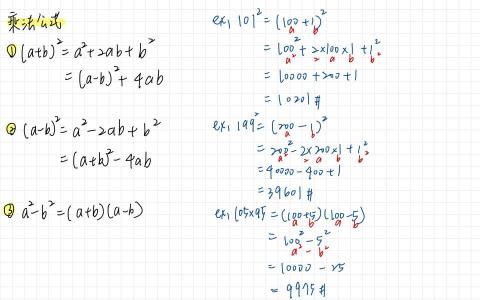 乘法公式
① (a+b)² = a² + 2ab + b²
= (a-b)² + 4ab
② (a-b)² = a² - 2ab + b²
= (a+b)² - 4ab
③ a² - b² = (a+b)(a-b)
ex, 101² = (100+1)²
a b
= 100² + 2×100×1 + 1²
a² 2 a b b²
= 10000 + 200 + 1
= 10201 #
ex, 199² = (200-1)²
a b
= 200² - 2×200×1 + 1²
a² 2 a b b²
= 40000 - 400 + 1
= 39601 #
ex, 105×95 = (100+5)(100-5)
a b a b
= 100² - 5²
a² - b²
= 10000 - 25
= 9975 #